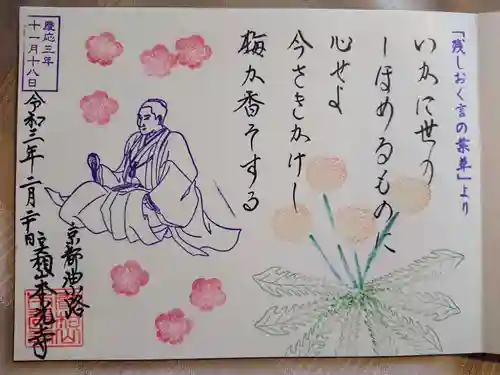 「残しおく言の葉草」より
いかに世の
しほめるものに
心せよ
今さきかけし
梅か香そする
慶応三年
十一月十八日
令和三年二月二十日
京都油小路
本光寺